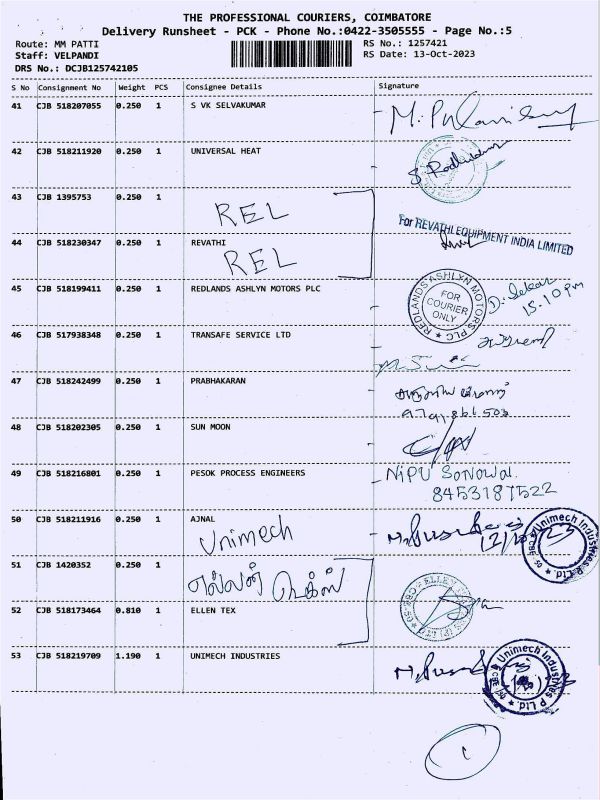 THE PROFESSIONAL COURIERS, COIMBATORE
Delivery Runsheet - PCK - Phone No.:0422-3505555 - Page No.:5
Route: MM PATTI
RS No.: 1257421
Staff: VELPANDI
RS Date: 13-Oct-2023
DRS No.: DCJB125742105
S No Consignment No Weight PCS Consignee Details Signature
41 CJB 518207055 0.250 1 S VK SELVAKUMAR
42 CJB 518211920 0.250 1 UNIVERSAL HEAT
43 CJB 1395753 0.250 1
REL
For REVATHI EQUIPMENT INDIA LIMITED
44 CJB 518230347 0.250 1 REVATHI
REL
45 CJB 518199411 0.250 1 REDLANDS ASHLYN MOTORS PLC
REDLANDS ASHLYN MOTORS PLC
FOR
COURIER
ONLY
15:10 pm
46 CJB 517938348 0.250 1 TRANSAFE SERVICE LTD
47 CJB 518242499 0.250 1 PRABHAKARAN
48 CJB 518202305 0.250 1 SUN MOON
49 CJB 518216801 0.250 1 PESOK PROCESS ENGINEERS
NiPU Sonowal
8453187522
50 CJB 518211916 0.250 1 AJNAL
Unimech
51 CJB 1420352 0.250 1
எல்லன் டெக்ஸ்
52 CJB 518173464 0.810 1 ELLEN TEX
53 CJB 518219709 1.190 1 UNIMECH INDUSTRIES
Unimech Industries P Ltd.
1